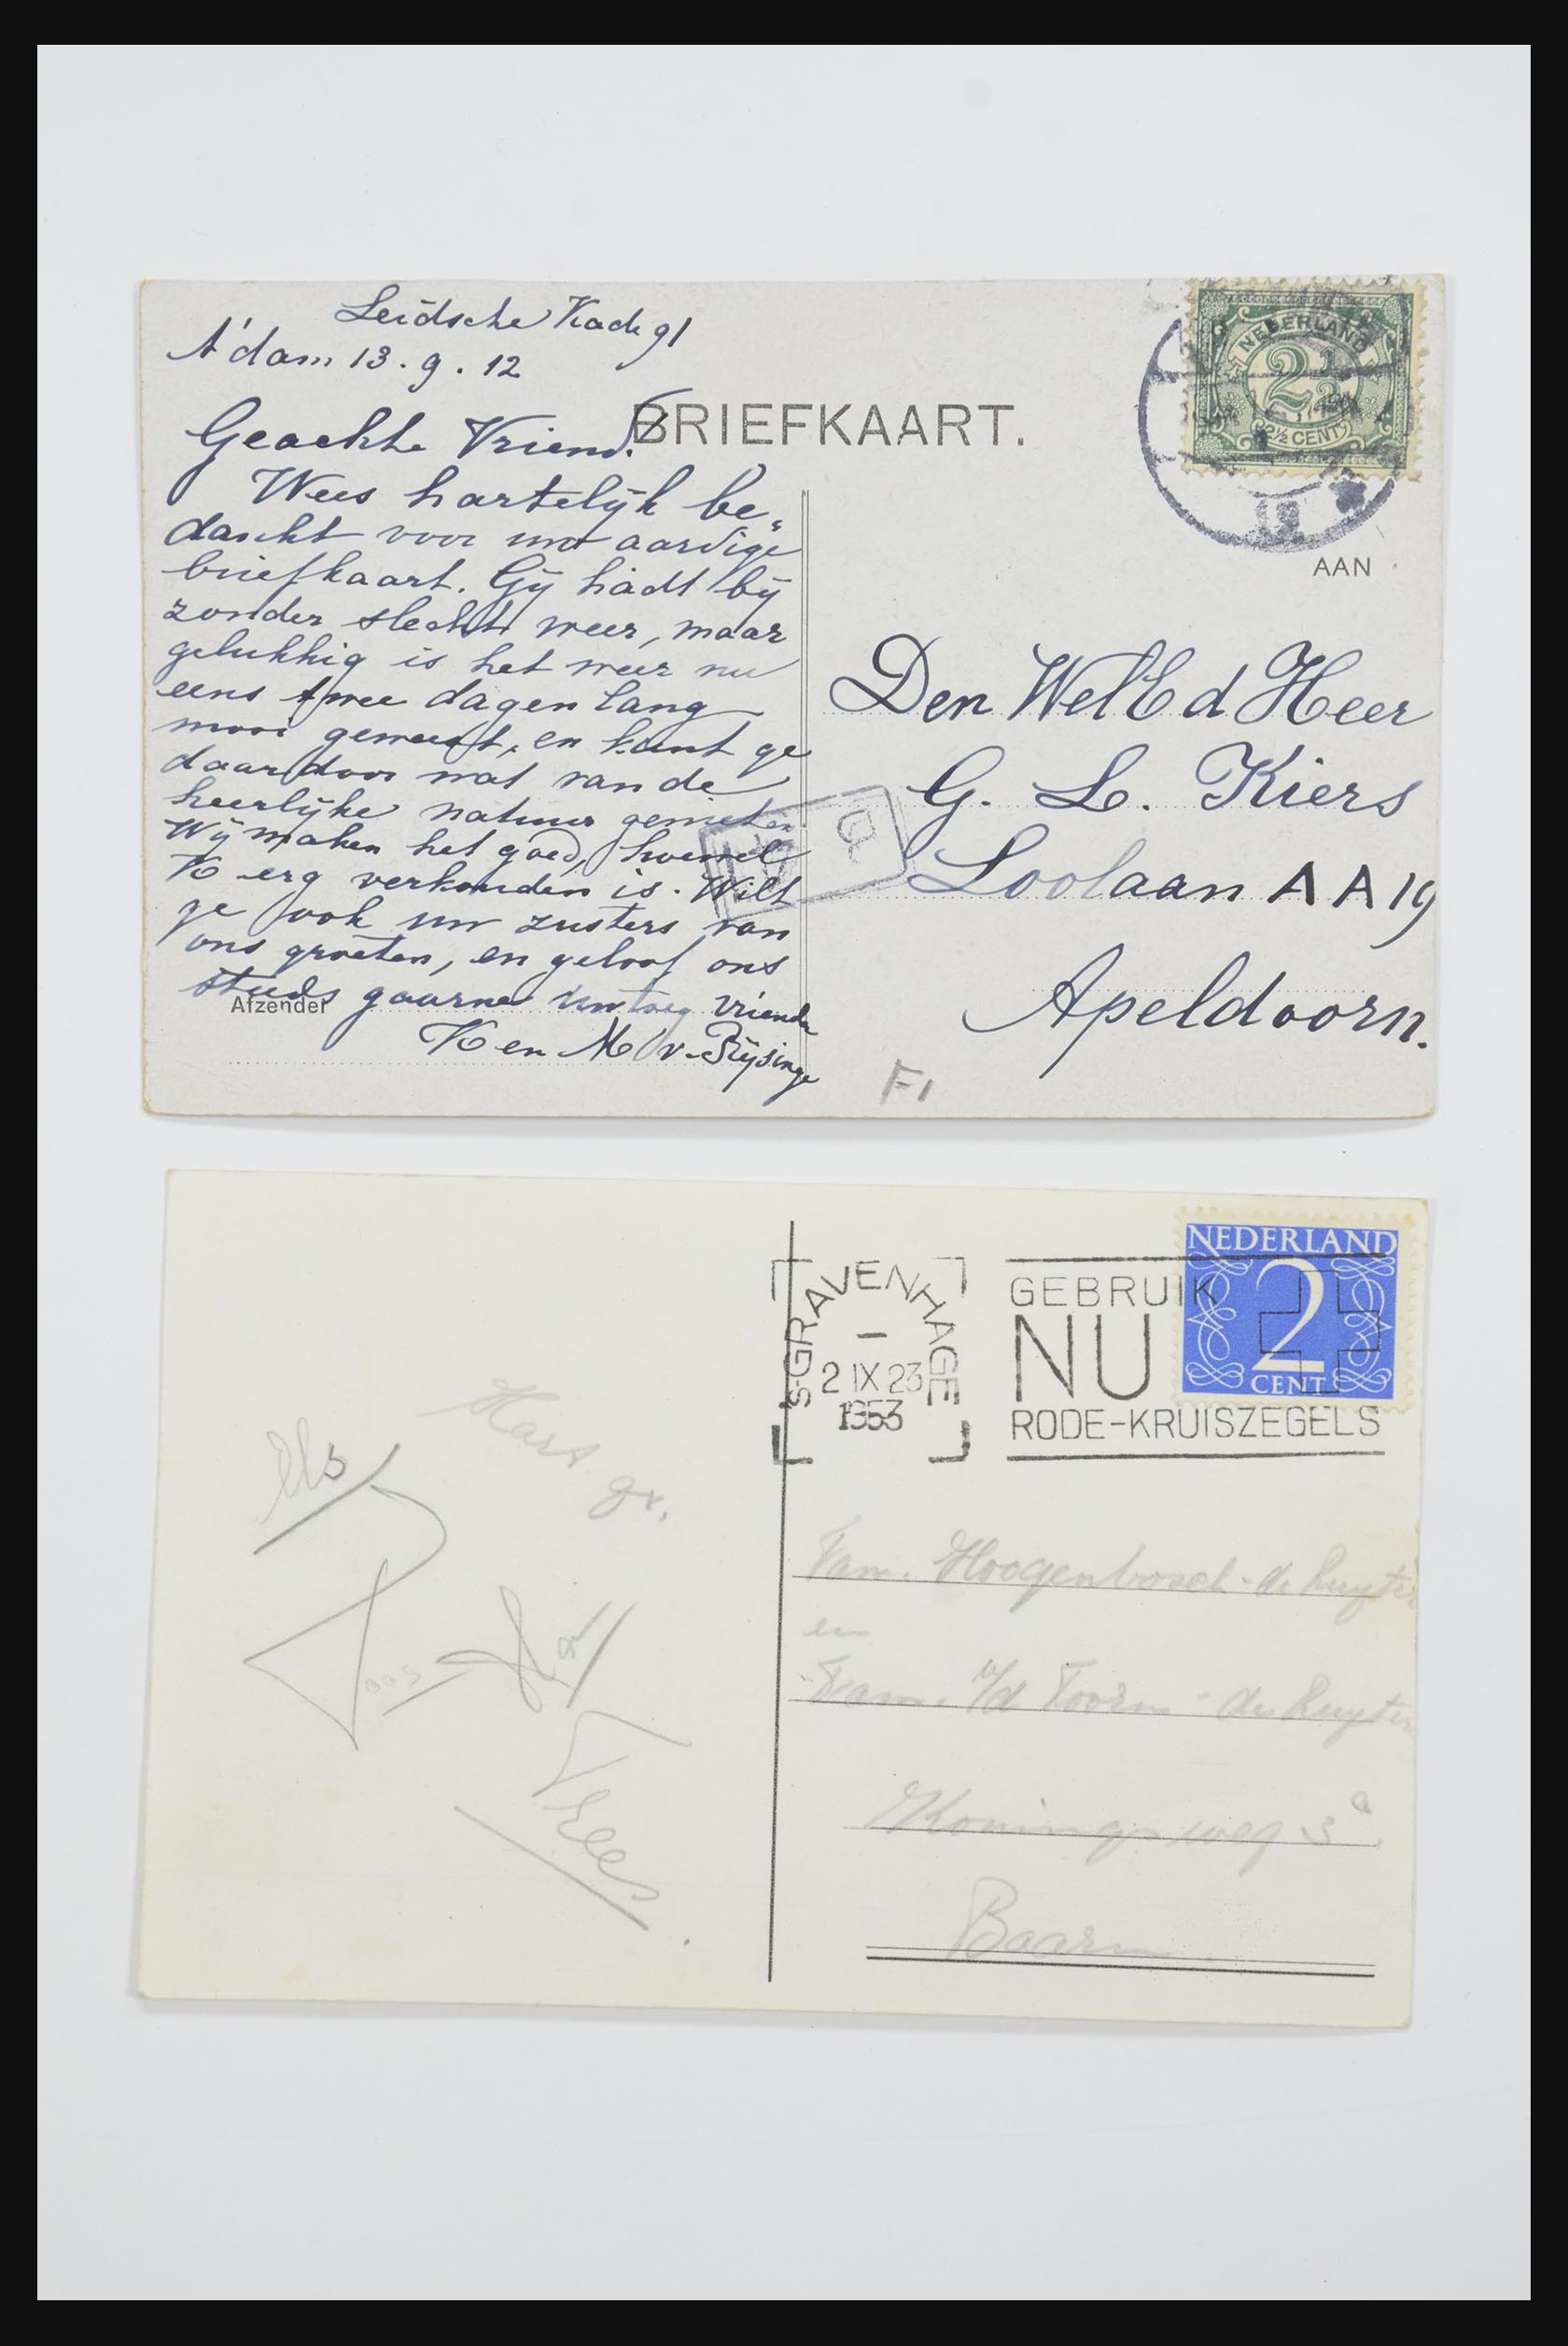 Leidsche Kade 91
A'dam 13.9.12
Geachte Vriend!
BRIEFKAART.
Wees hartelijk be„
dankt voor uw aardige
briefkaart. Gij hadt bij
zonder slecht weer, maar
gelukkig is het weer nu
eens twee dagen lang
mooi geweest, en kunt ge
daardoor wat van de
heerlijke natuur genieten
Wij maken het goed, hoewel
K erg verkouden is. Wilt
ge ook uw zusters van
ons groeten, en geloof ons
steeds gaarne Uw vrienden
Afzender
K en M v. Rijsinge
NEDERLAND
2½
2½ CENT
AAN
Den WelEd Heer
G. L. Kiers
Loolaan AA19
Apeldoorn.
F1
NEDERLAND
2
CENT
's-GRAVENHAGE
2 IX 23
1953
GEBRUIK
NU
RODE-KRUISZEGELS
Hart gr.
Els
Trees
Fam. Hoogenbosch-de Ruyter
en
Fam. v/d Toorn-de Ruyter
Koningsweg 3a
Baarn